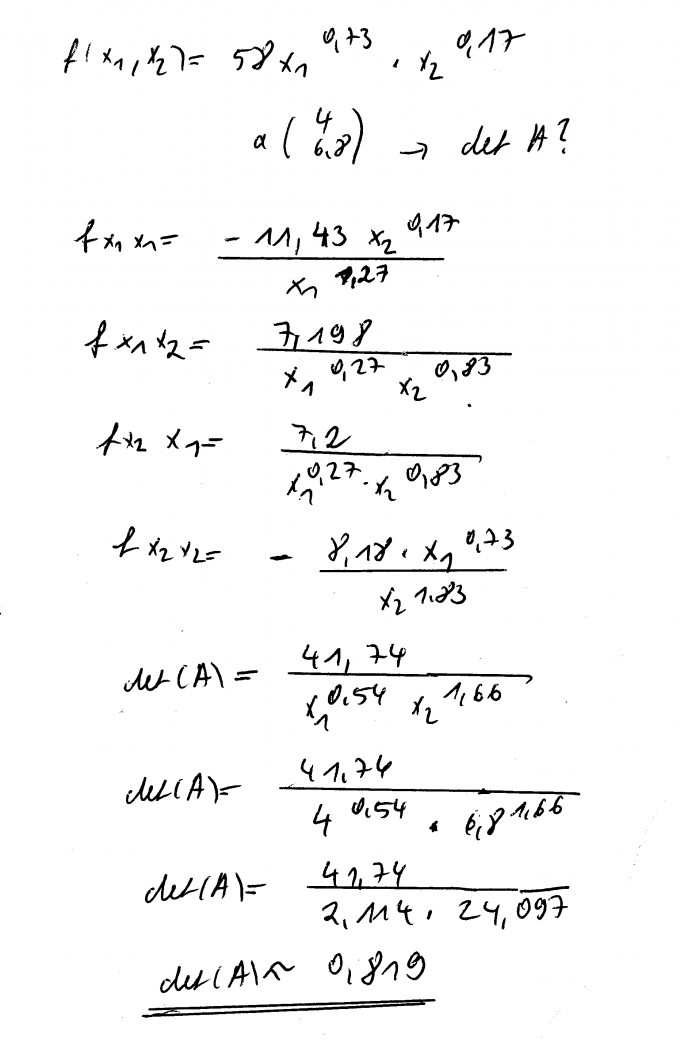 f(x₁,x₂)= 58x₁^0,73 · x₂^0,17
a (4 6,8) → det A?
f x₁ x₁= - 11,43 x₂^0,17 / x₁^1,27
f x₁ x₂= 7,198 / x₁^0,27 x₂^0,83
f x₂ x₁= 7,2 / x₁^0,27 · x₂^0,83
f x₂ x₂= - 8,18 · x₁^0,73 / x₂^1.83
det(A)= 41,74 / x₁^0.54 x₂^1,66
det(A)= 41,74 / 4^0,54 · 6,8^1,66
det(A)= 41,74 / 2,114 · 24,097
det(A)≈ 0,819